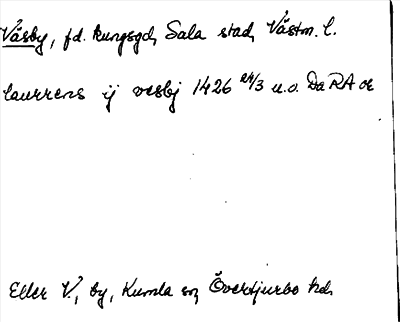 Väsby, fd. kungsgd, Sala stad, Västm. l.
laurrens ij vesbj 1426 24/3 u.o. Da RA or
Eller V., by, Kumla sn, Övertjurbo hd